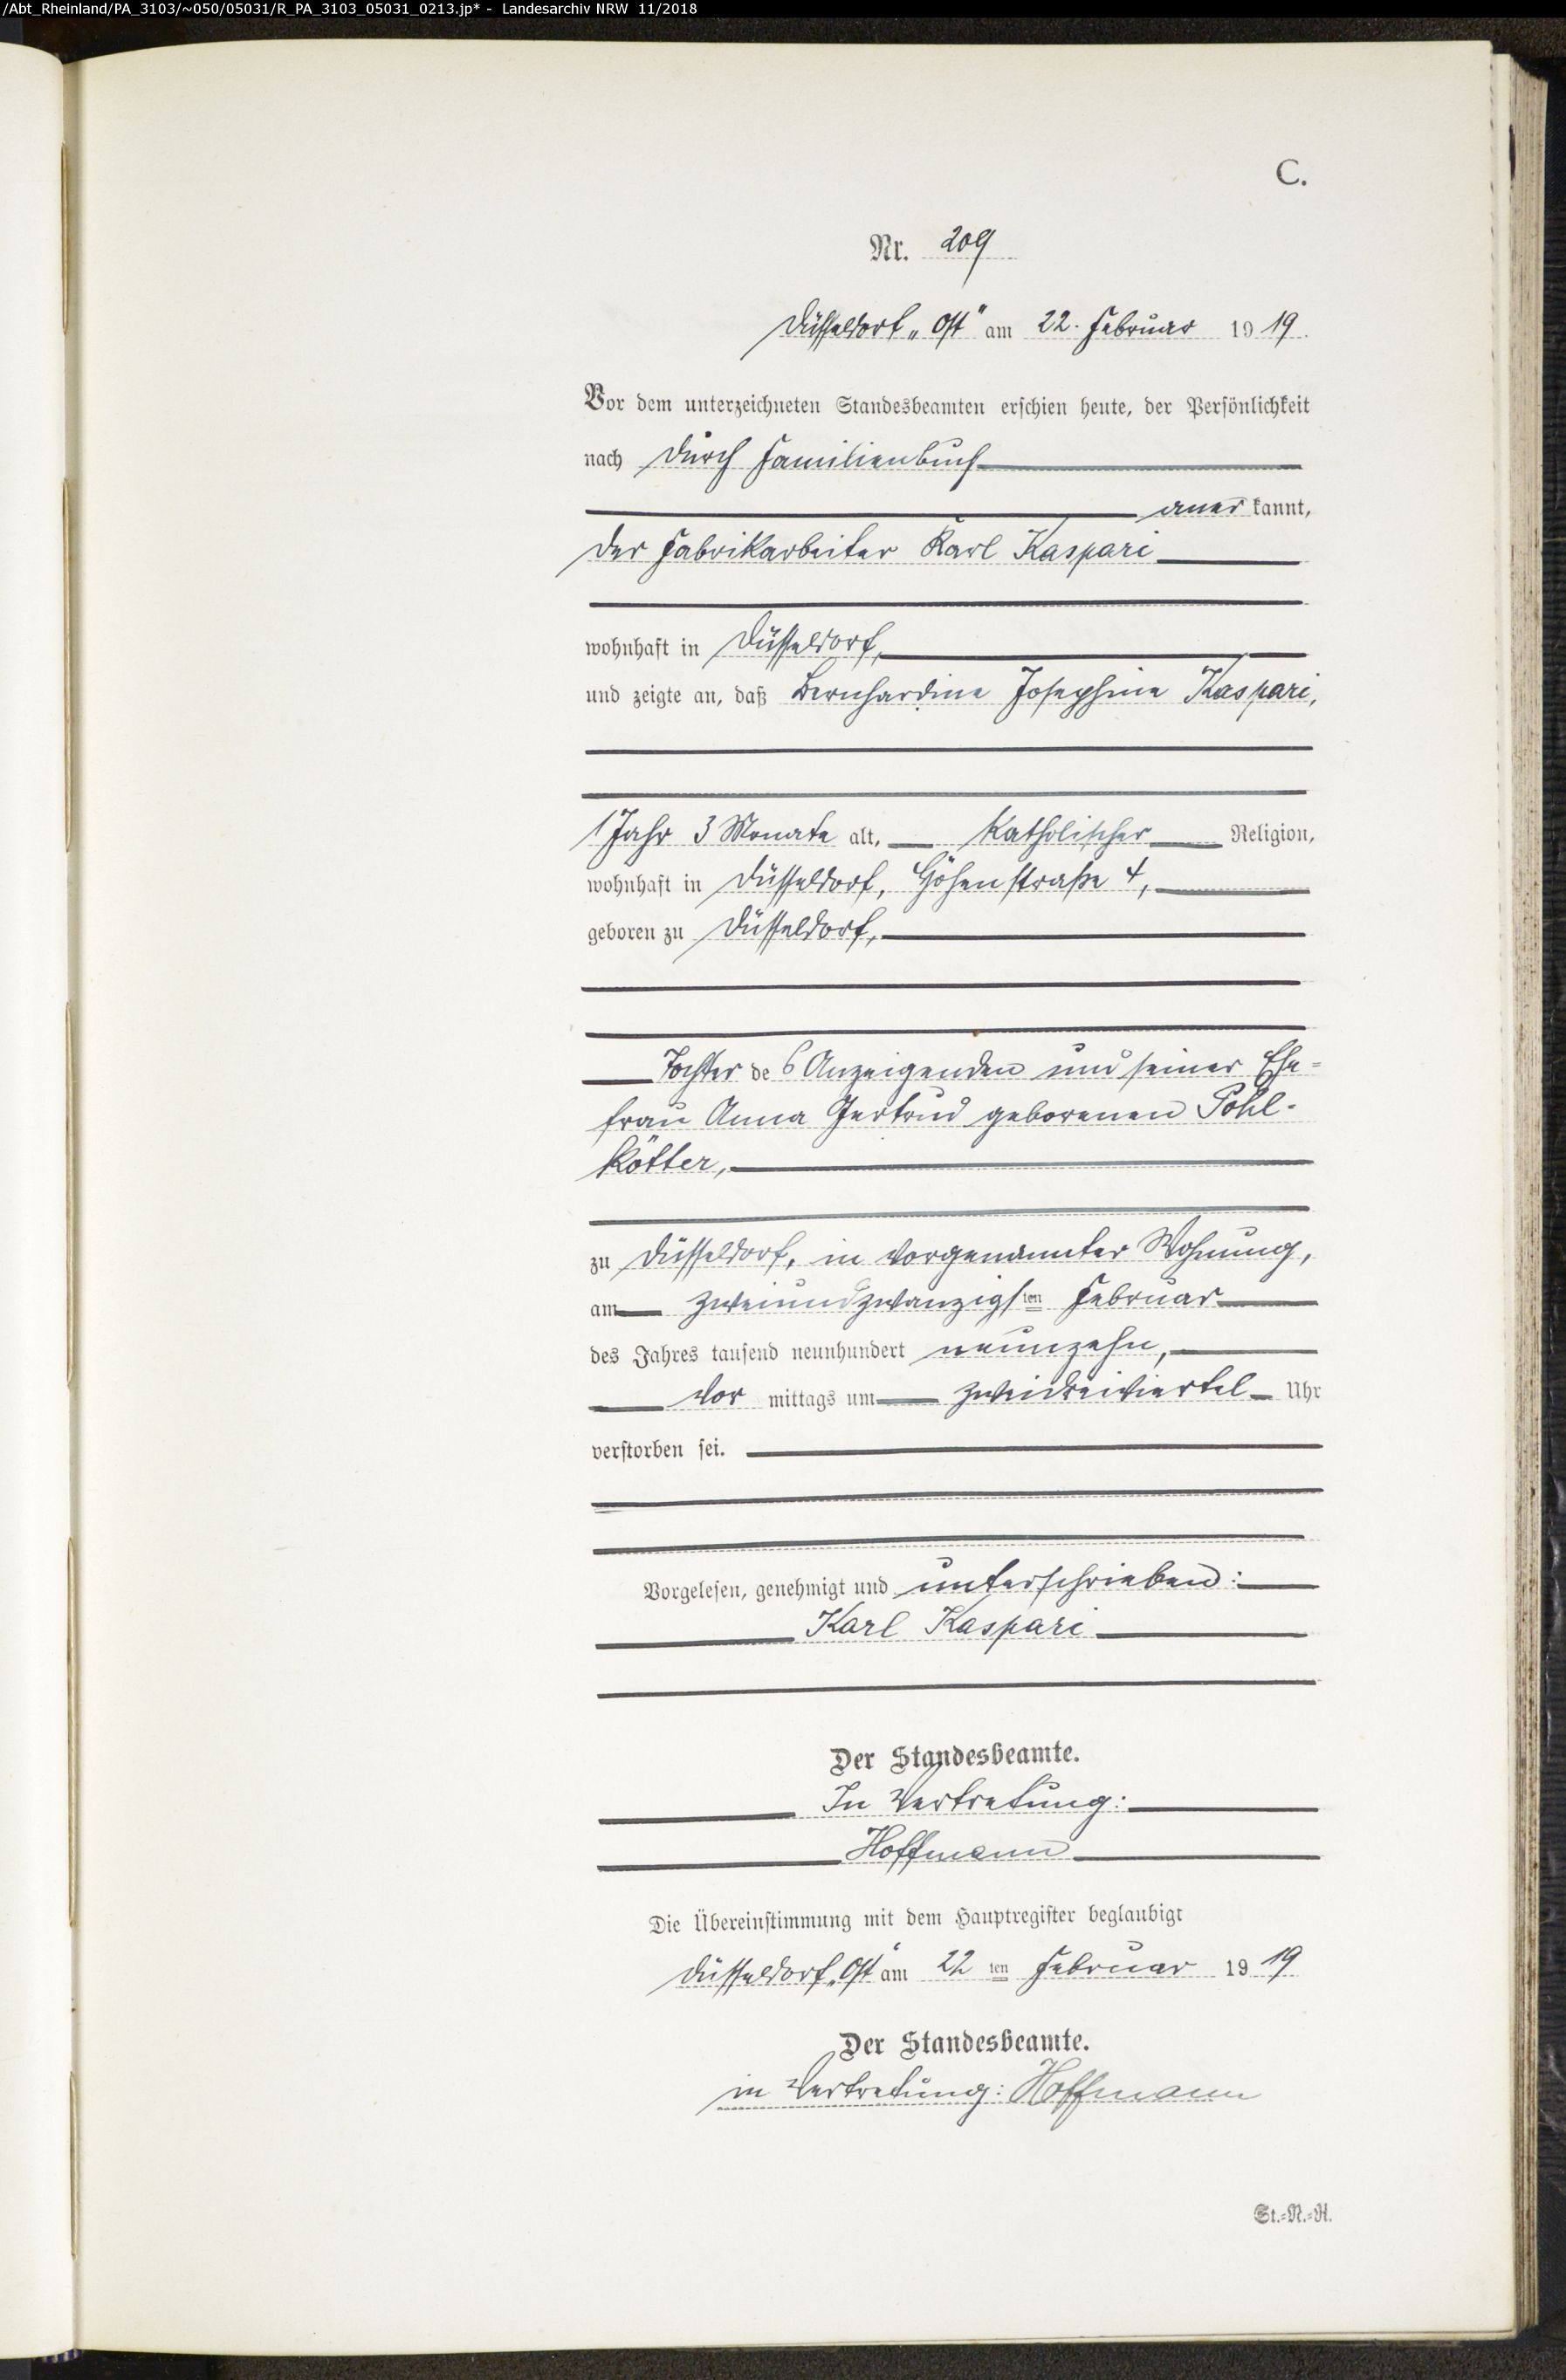 /Abt_Rheinland/PA_3103/~050/05031/R_PA_3103_05031_0213.jp* - Landesarchiv NRW 11/2018
C.
Nr. 209
Düsseldorf „Ost" am 22. Februar 1919.
Vor dem unterzeichneten Standesbeamten erschien heute, der Persönlichkeit
nach durch Familienbuch
anerkannt,
der Fabrikarbeiter Karl Kaspari
wohnhaft in Düsseldorf,
und zeigte an, daß Bernhardine Josephine Kaspari,
1 Jahr 3 Monate alt, katholischer Religion,
wohnhaft in Düsseldorf, Höhenstraße 4,
geboren zu Düsseldorf,
Tochter des Anzeigenden und seiner Ehe-
frau Anna Gertrud geborenen Pohl-
kötter,
zu Düsseldorf, in vorgenannter Wohnung,
am zweiundzwanzigsten Februar
des Jahres tausend neunhundert neunzehn,
vor mittags um zweidreiviertel Uhr
verstorben sei.
Vorgelesen, genehmigt und unterschrieben:
Karl Kaspari
Der Standesbeamte.
In Vertretung:
Hoffmann
Die Übereinstimmung mit dem Hauptregister beglaubigt
Düsseldorf „Ost" am 22 ten Februar 1919
Der Standesbeamte.
in Vertretung: Hoffmann
St.-N.-R.